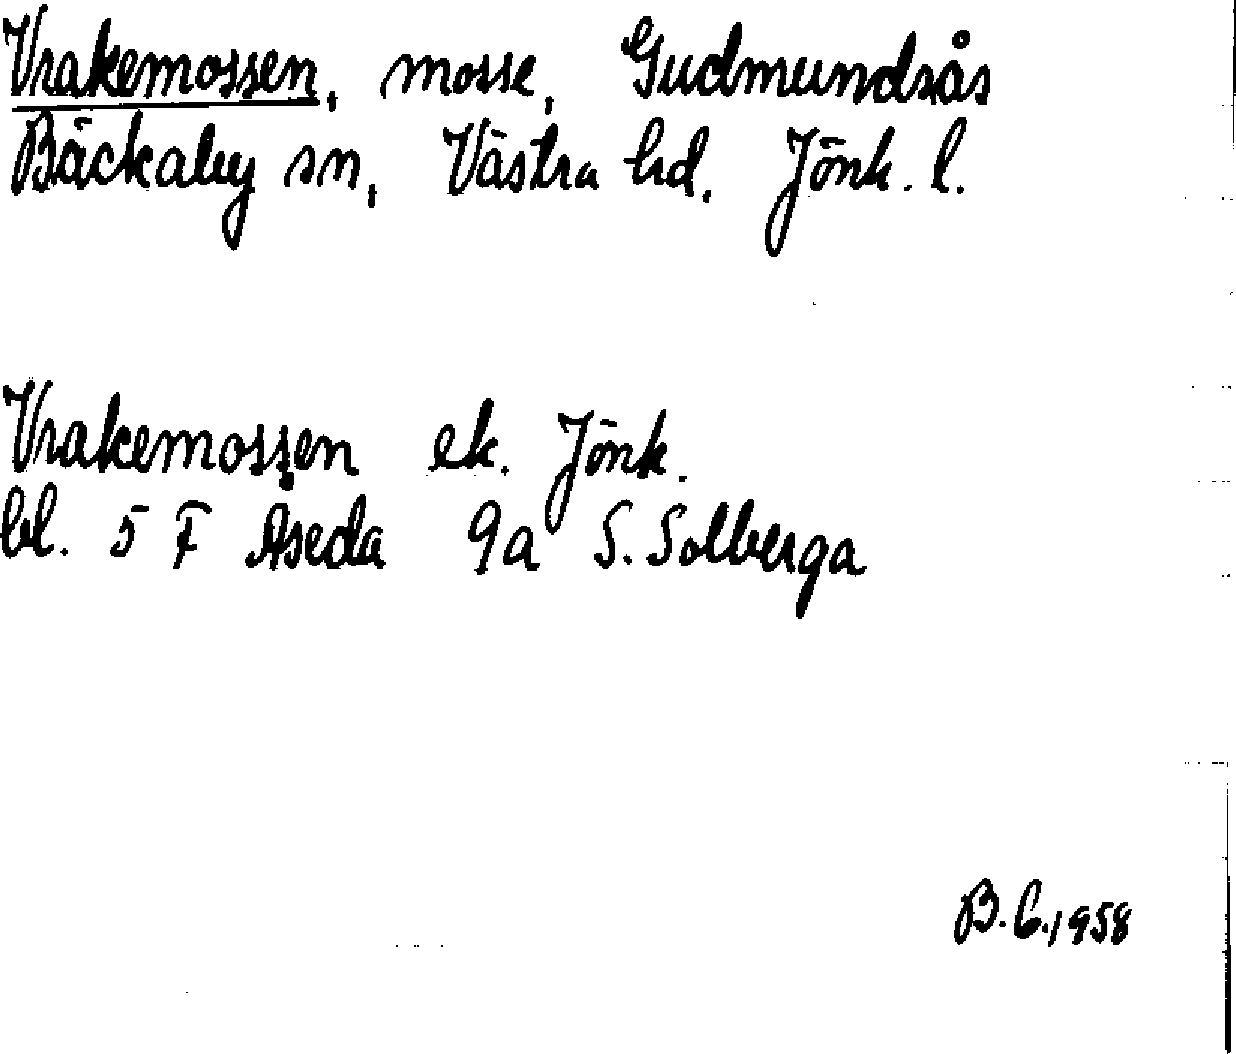 Vrakemossen, mosse, Gudmundsås
Bäckaby sn, Västra hd, Jönk. l.
Vrakemossen ek. Jönk.
bl. 5 F Åseda 9a S. Solberga
B. C. 1958